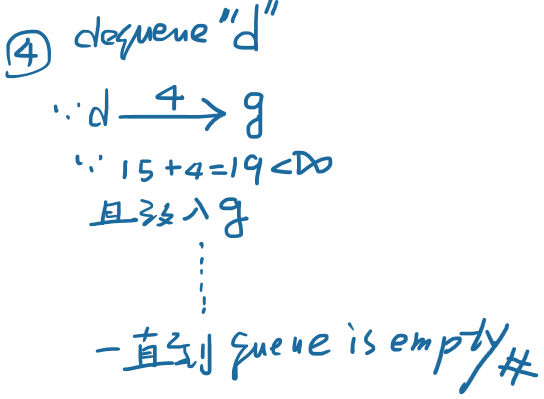 ④ dequeue "d"
∵ d 4→ g
∵ 15+4=19<∞
且放入g
一直到 queue is empty #